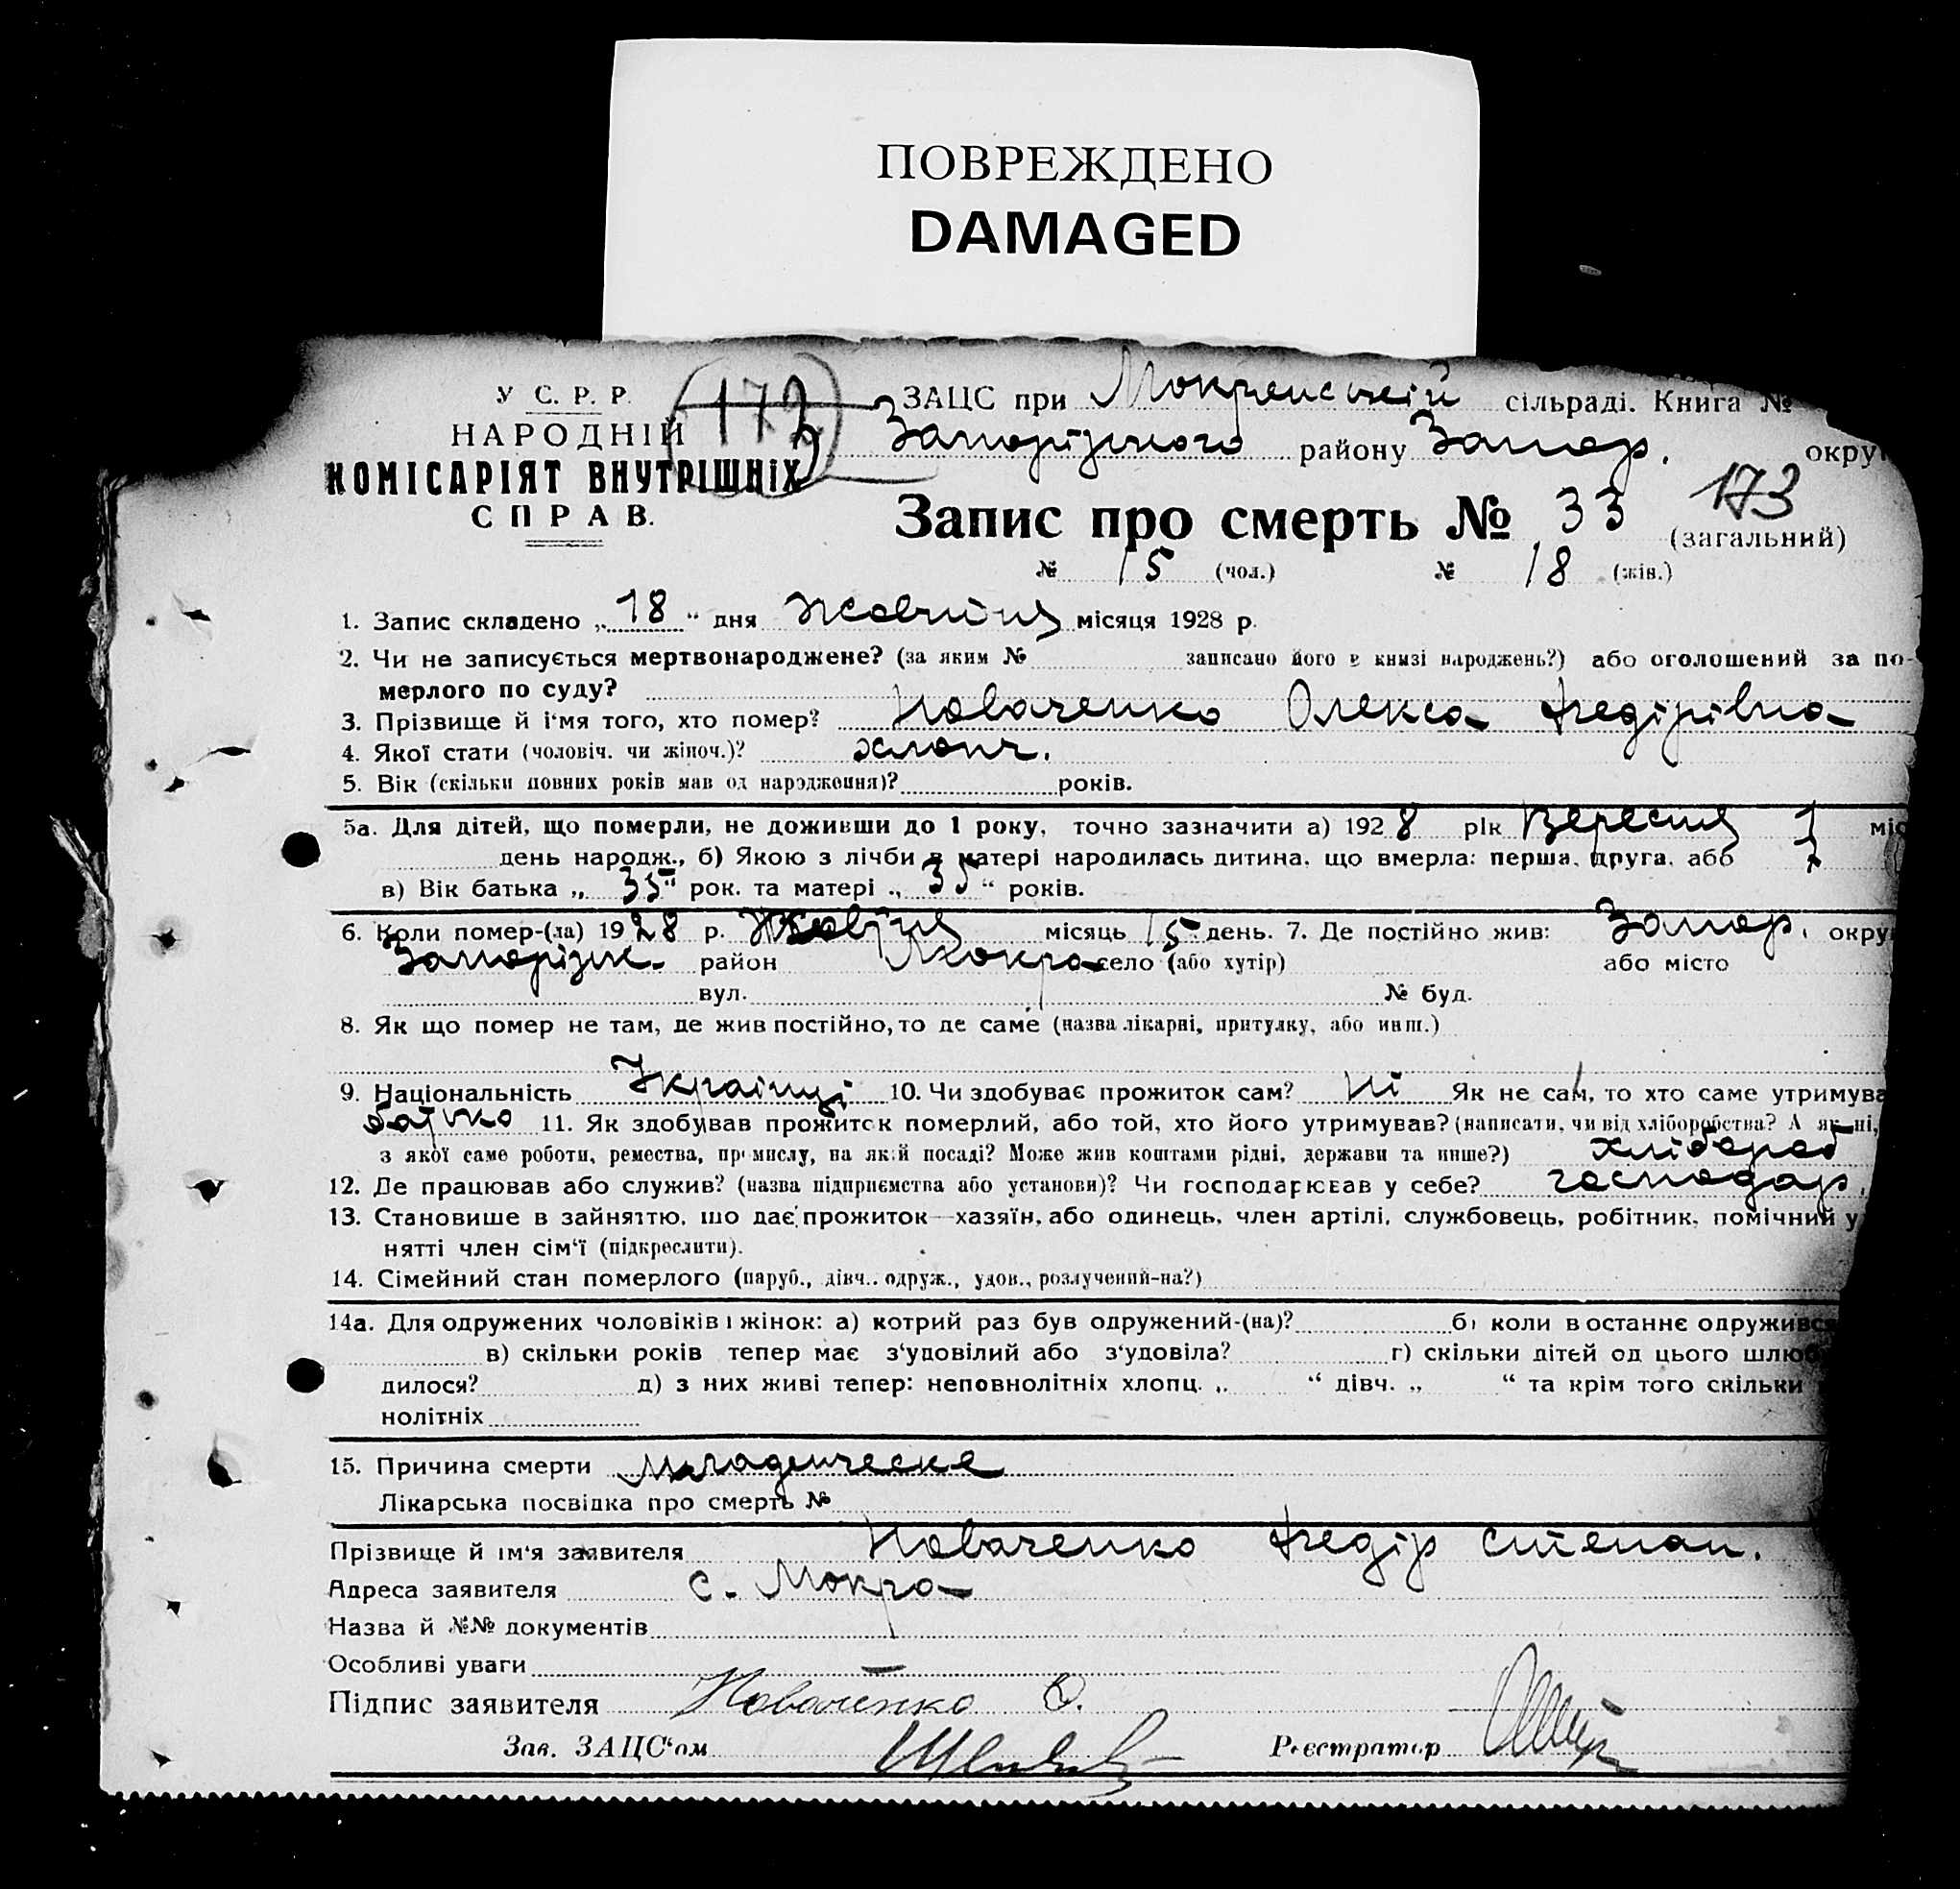 ПОВРЕЖДЕНО
DAMAGED
У С. Р. Р.
НАРОДНІЙ
КОМІСАРІЯТ ВНУТРІШНІХ
СПРАВ.
172
ЗАЦС при Мокрянській сільраді. Книга №
Запорізького району Запор. окру
Запис про смерть № 33 173
(загальний)
№ 15 (чол.) № 18 (жін.)
1. Запис складено „18“ дня Жовтня місяця 1928 р.
2. Чи не записується мертвонароджене? (за яким № записано його в книзі народжень?) або оголошений за по-
мерлого по суду?
3. Прізвище й і'мя того, хто помер? Коваченко Олекса Федірівна
4. Якої стати (чоловіч. чи жіноч.)? хлопч.
5. Вік (скільки повних років мав од народження)? років.
5а. Для дітей, що померли, не доживши до 1 року, точно зазначити а) 1928 рік Вересня 1 міс
день народж., б) Якою з лічби в матері народилась дитина, що вмерла: перша, друга, або
в) Вік батька „35“ рок. та матері „35“ років.
6. Коли помер-(ла) 1928 р. Жовтня місяць 15 день. 7. Де постійно жив: Запор. окру
Запорізьк. район Мокра село (або хутір) або місто
вул. № буд.
8. Як що помер не там, де жив постійно, то де саме (назва лікарні, притулку, або инш.)
9. Національність Українці 10. Чи здобував прожиток сам? ні Як не сам, то хто саме утримува
батько 11. Як здобував прожиток померлий, або той, хто його утримував? (написати, чи від хліборобства? А як ні,
з якої саме роботи, ремества, промислу, на якій посаді? Може жив коштами рідні, держави та инше?) хлібороб
12. Де працював або служив? (назва підприємства або установи)? Чи господарював у себе? господар.
13. Становище в зайняттю, що дає прожиток—хазяїн, або одинець, член артілі, службовець, робітник, помічний у
нятті член сім'ї (підкреслити).
14. Сімейний стан померлого (паруб., дівч., одруж., удов., розлучений-на?)
14а. Для одружених чоловіків і жінок: а) котрий раз був одружений-(на)? б) коли в останнє одружився
в) скільки років тепер має з'удовілий або з'удовіла? г) скільки дітей од цього шлюб
дилося? д) з них живі тепер: неповнолітніх хлопц. „ “ дівч. „ “ та крім того скільки
нолітніх
15. Причина смерти младенческе
Лікарська посвідка про смерть №
Прізвище й ім'я заявителя Коваченко Федір Степан.
Адреса заявителя с. Мокра
Назва й №№ документів
Особливі уваги —
Підпис заявителя Коваченко Ф.
Зав. ЗАЦС'ом Реєстратор